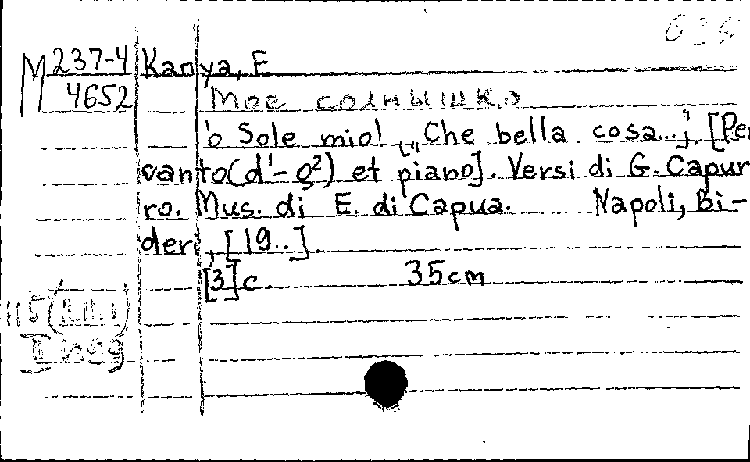 М 237-4 Капуа, Е
4652 Мое солнышко
'o Sole mio! „Che bella cosa..." [Per
canto (d¹-g²) et piano]. Versi di G. Capur
ro. Mus. di E. di Capua. Napoli, Bi-
deri, [19..].
[3] c. 35 cm